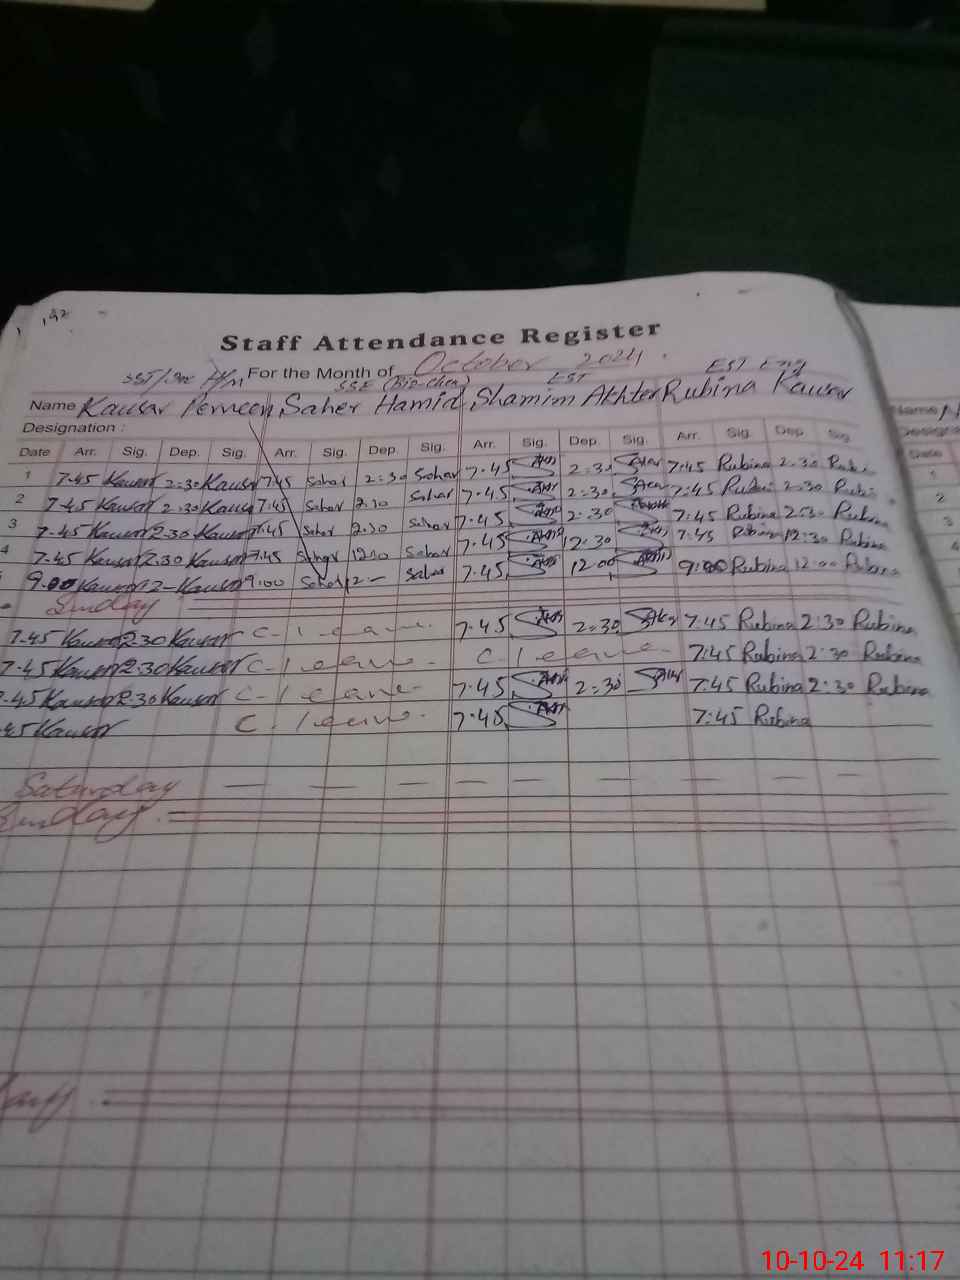 Staff Attendance Register
For the Month of October 2024
H/m SSE (Bio-chem) EST EST Eng
Name Kausar Perveen Saher Hamid Shamim Akhter Rubina Kauser Name
Designation :
Date Arr. Sig. Dep. Sig. Arr. Sig. Dep. Sig. Arr. Sig. Dep. Sig. Arr. Sig. Dep. Sig Date
1 7.45 Kausar 2:30 Kausar 7:45 Sahar 2:30 Sahar 7.45 2:30 7:45 Rubina 2:30 1
2 7.45 Kausar 2:30 Kausar 7:45 Sahar 2:30 Sahar 7.45 2:30 7:45 2:30 2
3 7.45 Kausar 2.30 Kausar 7:45 Sahar 2:30 Sahar 7.45 2:30 7:45 Rubina 2:30 Rubina 3
4 7.45 Kausar 12.30 Kausar 7:45 Sahar 12:30 Sahar 7.45 12:30 7:45 Rubina 12:30 Rubina 4
9.00 Kausar 12 - Kausar 9:00 Sahar 12 - Sahar 7.45 12 00 9:00 Rubina 12:00 Rubina
Sunday
7.45 Kausar 2.30 Kausar C. leave. 7.45 2:30 7:45 Rubina 2:30 Rubina
7.45 Kausar 2:30 Kausar C. leave. C. leave. 7:45 Rubina 2:30 Rubina
.45 Kausar 2:30 Kausar C. leave 7.45 2:30 7:45 Rubina 2:30 Rubina
.45 Kausar C. leave. 7.45 7:45 Rubina
Saturday — — — — — — — —
Sunday.
10-10-24 11:17